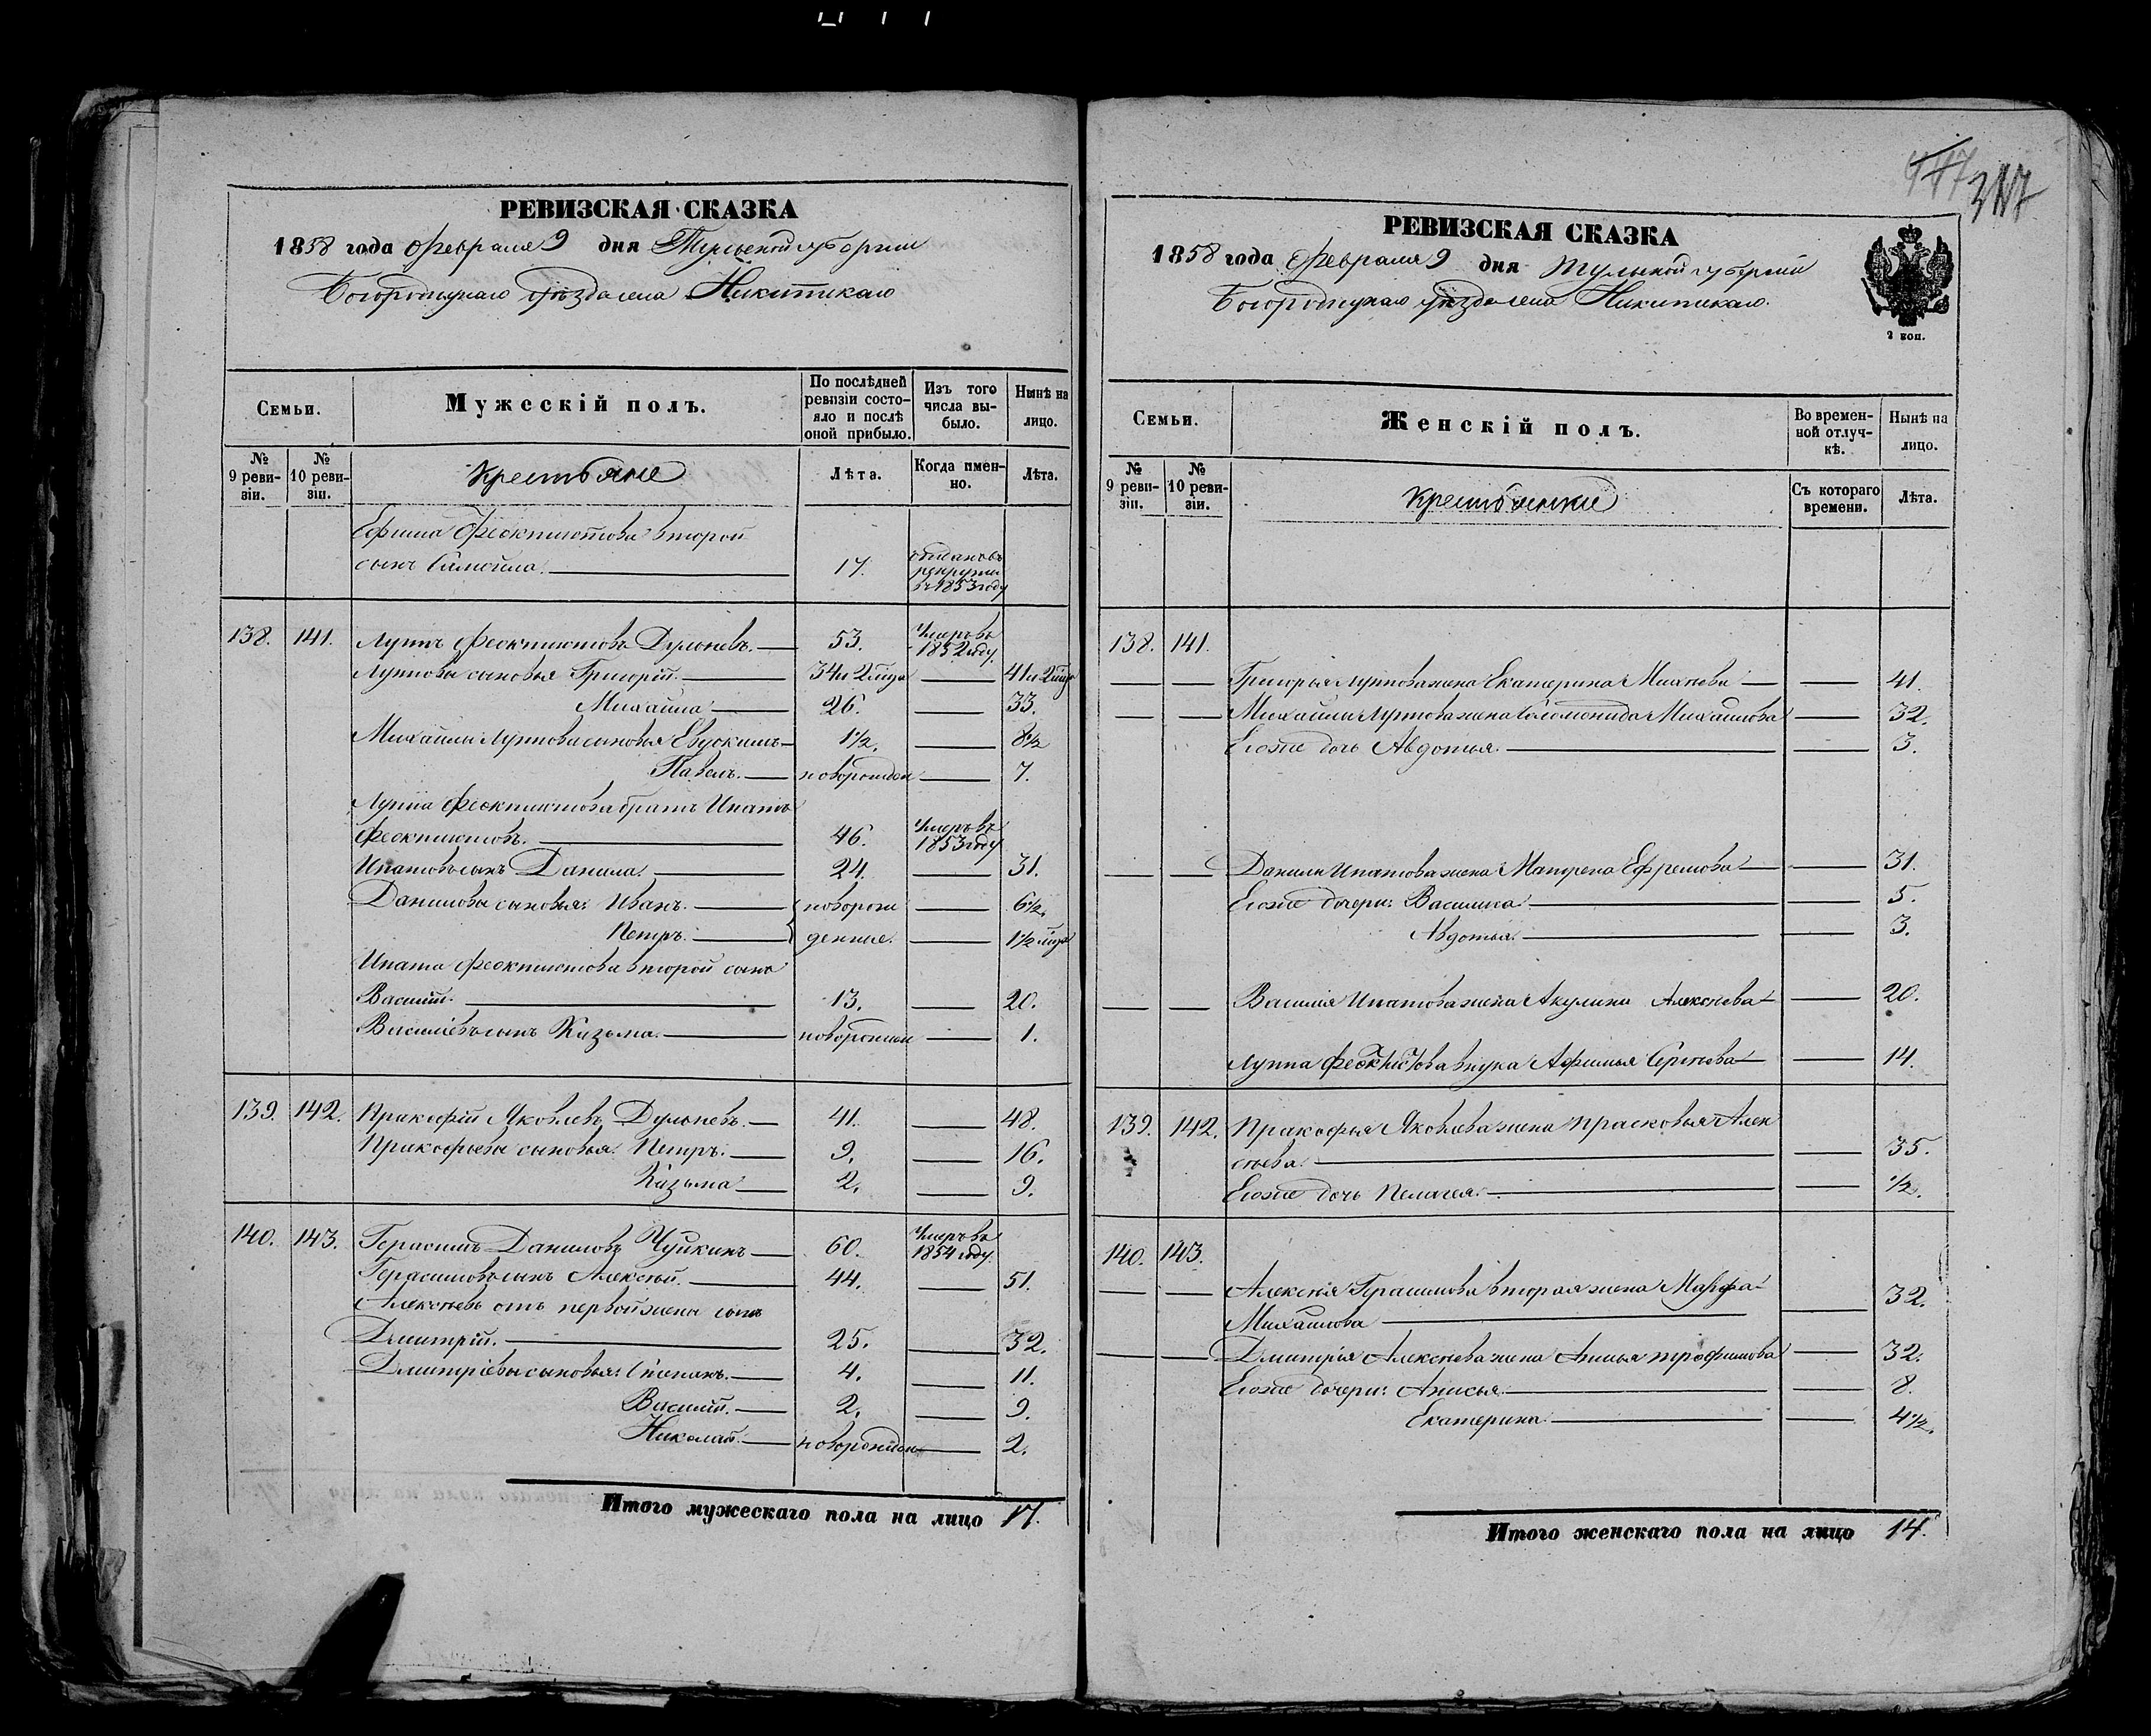 РЕВИЗСКАЯ СКАЗКА
1858 года Февраля 9 дня Тульской губернии
Богородицкаго уѣзда села Никитскаго
Семьи.
Мужескій полъ.
По послѣдней ревизіи состояло и послѣ оной прибыло.
Изъ того числа выбыло.
Нынѣ на лицо.
№ 9 ревизіи.
№ 10 ревизіи.
Крестьяне
Лѣта.
Когда именно.
Лѣта.
Ефима Феоктистова второй
сынъ Самойла. 17. отданъ въ рекруты въ 1853 году
138. 141. Луппъ Феоктистовъ Дульневъ. 53. Умеръ въ 1852 году.
Лупповы сыновья Григорій. 34 и 2 мѣца 41 и 2 мѣца
Михайла 26. 33.
Михайлы Луппова сыновья Евдокимъ 1 1/2. 8 1/2
Павелъ. новорожден 7.
Луппа Феоктистова братъ Ипатъ
Феоктистовъ. 46. Умеръ въ 1853 году
Ипатовъ сынъ Данила. 24. 31.
Даниловы сыновья: Иванъ. новорож 6 1/2.
Петръ. денные. 1 1/2 мѣца
Ипата Феоктистова второй сынъ
Василій. 13. 20.
Васильевъ сынъ Кузьма. новорожден 1.
139. 142. Пракофій Яковлевъ Дульневъ. 41. 48.
Пракофьевы сыновья: Петръ. 9. 16.
Кузьма 2. 9.
140. 143. Герасимъ Даниловъ Чуйкинъ 60. Умеръ въ 1854 году.
Герасимовъ сынъ Алексѣй. 44. 51.
Алексѣевъ отъ первой жены сынъ
Дмитрій. 25. 32.
Дмитріевы сыновья: Степанъ. 4. 11.
Василій. 2. 9.
Николай. новорожден 2.
Итого мужескаго пола на лицо 17.
317
РЕВИЗСКАЯ СКАЗКА
1858 года Февраля 9 дня Тульской губерніи
Богородицкаго уѣзда села Никитскаго.
2 коп.
Семьи.
Женскій полъ.
Во временной отлучкѣ.
Нынѣ на лицо.
№ 9 ревизіи.
№ 10 ревизіи.
Крестьянки
Съ котораго времени.
Лѣта.
138. 141.
Григорья Луппова жена Екатерина Михѣева 41.
Михайлы Луппова жена Соломонида Михайлова 32.
Егоже дочь Авдотья. 3.
Данилы Ипатова жена Матрена Ефремова 31.
Егоже дочери: Василиса 5.
Авдотья. 3.
Василія Ипатова жена Акулина Алексѣева 20.
Луппа Феоктистова внука Афимья Сергѣева 14.
139. 142. Пракофья Яковлева жена Прасковья Алек
сѣева. 35.
Егоже дочь Пелагея. 1/2.
140. 143.
Алексѣя Герасимова вторая жена Марфа
Михайлова 32.
Дмитрія Алексѣева жена Анна Трофимова 32.
Егоже дочери: Анисья. 8.
Екатерина. 4 1/2.
Итого женскаго пола на лицо 14.